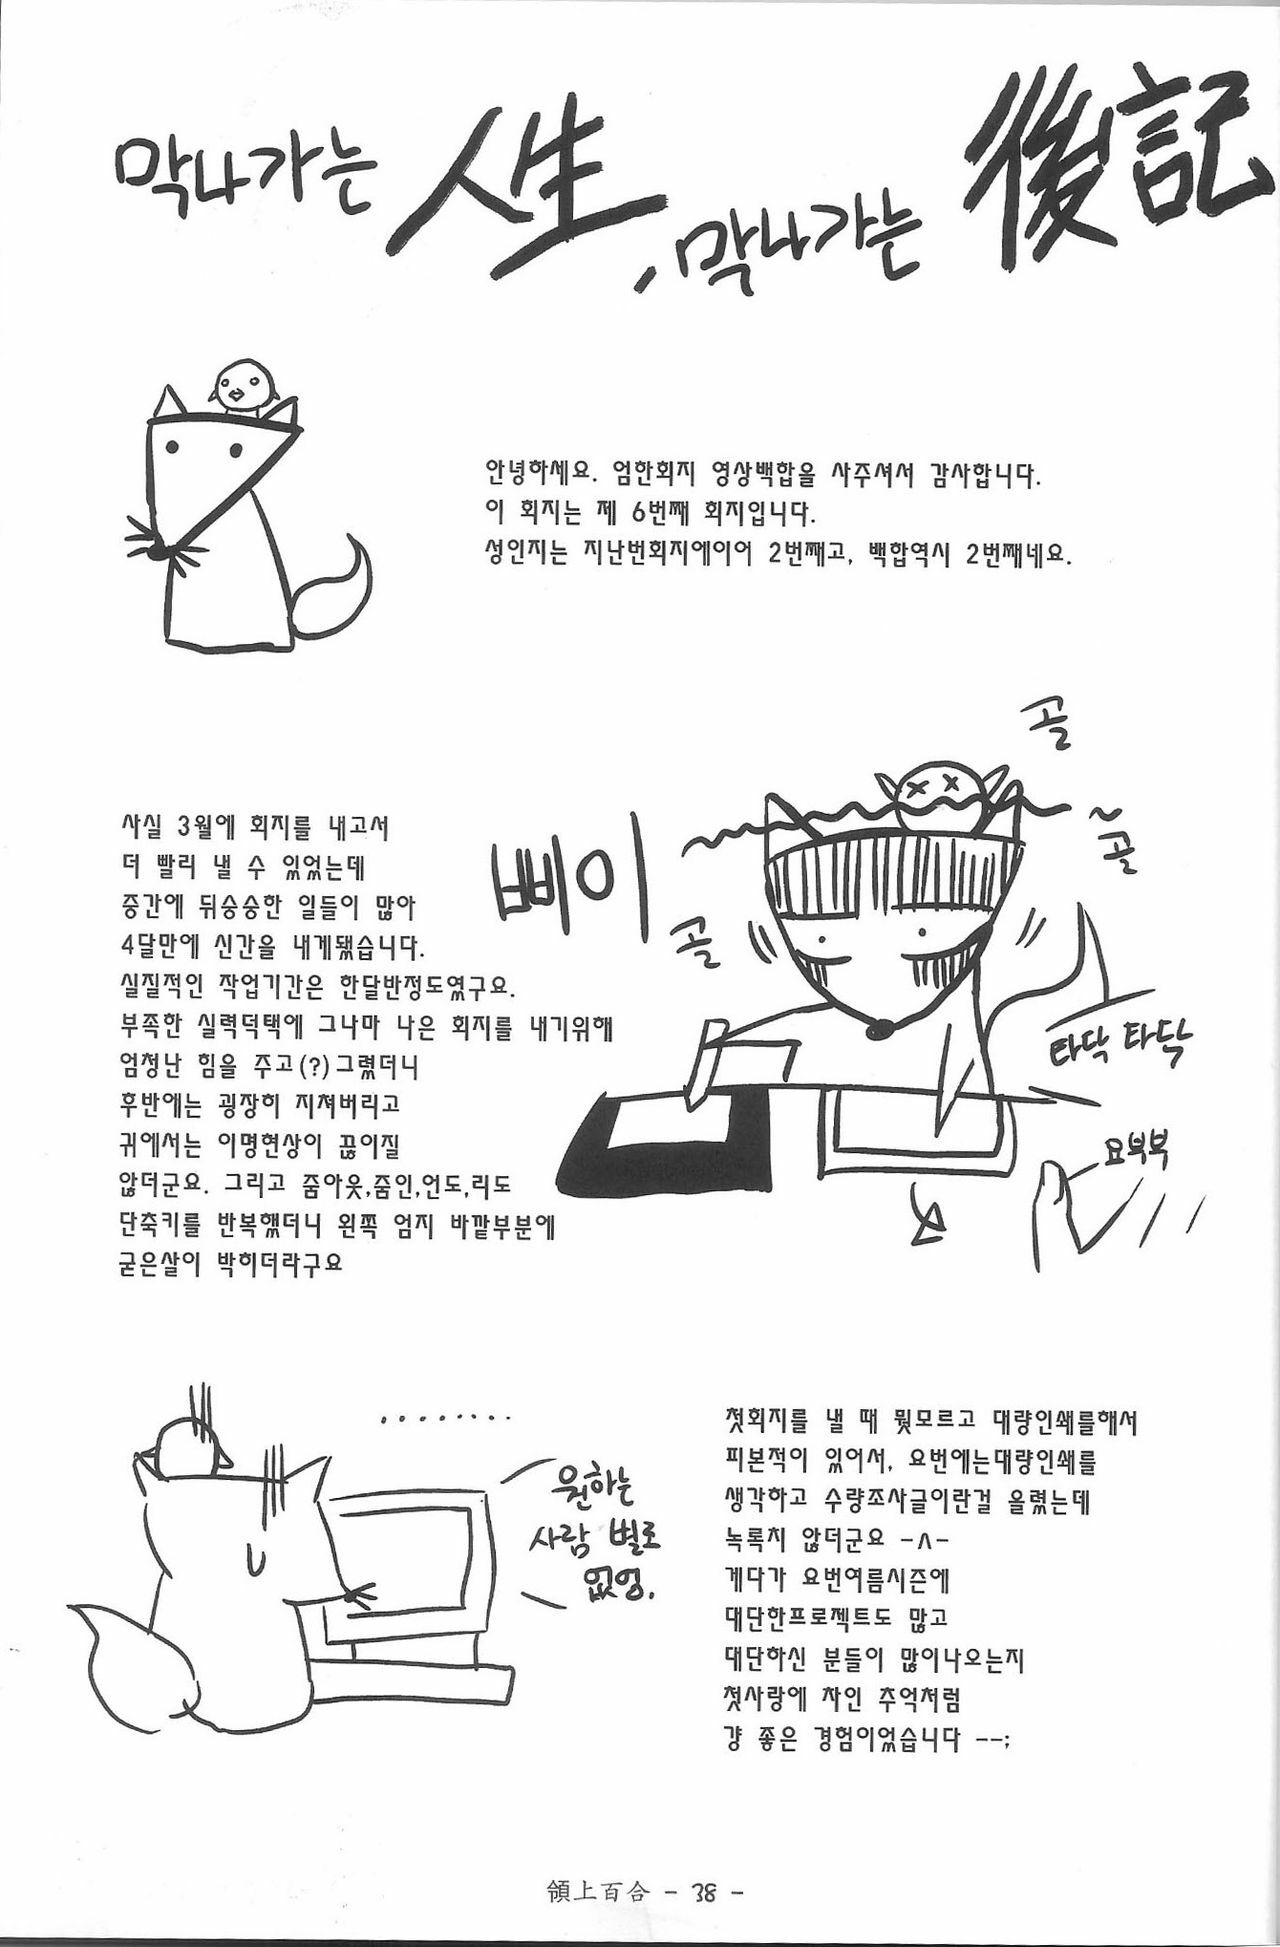 막나가는 人生, 막나가는 後記
안녕하세요. 엄한회지 영상백합을 사주셔서 감사합니다.
이 회지는 제 6번째 회지입니다.
성인지는 지난번회지에이어 2번째고, 백합역시 2번째네요.
사실 3월에 회지를 내고서
더 빨리 낼 수 있었는데
중간에 뒤숭숭한 일들이 많아
4달만에 신간을 내게됐습니다.
실질적인 작업기간은 한달반정도였구요.
부족한 실력덕택에 그나마 나은 회지를 내기위해
엄청난 힘을 주고(?)그렸더니
후반에는 굉장히 지쳐버리고
귀에서는 이명현상이 끊이질
않더군요. 그리고 줌아웃,줌인,언도,리도
단축키를 반복했더니 왼쪽 엄지 바깥부분에
굳은살이 박히더라구요
삐이
골
~골
골
타닥 타닥
요부부
........
원하는
사람 별로
없엉.
첫회지를 낼 때 뭣모르고 대량인쇄를해서
피본적이 있어서, 요번에는대량인쇄를
생각하고 수량조사글이란걸 올렸는데
녹록치 않더군요 -ㅅ-
게다가 요번여름시즌에
대단한프로젝트도 많고
대단하신 분들이 많이나오는지
첫사랑에 차인 추억처럼
걍 좋은 경험이었습니다 --;
領上百合 - 38 -